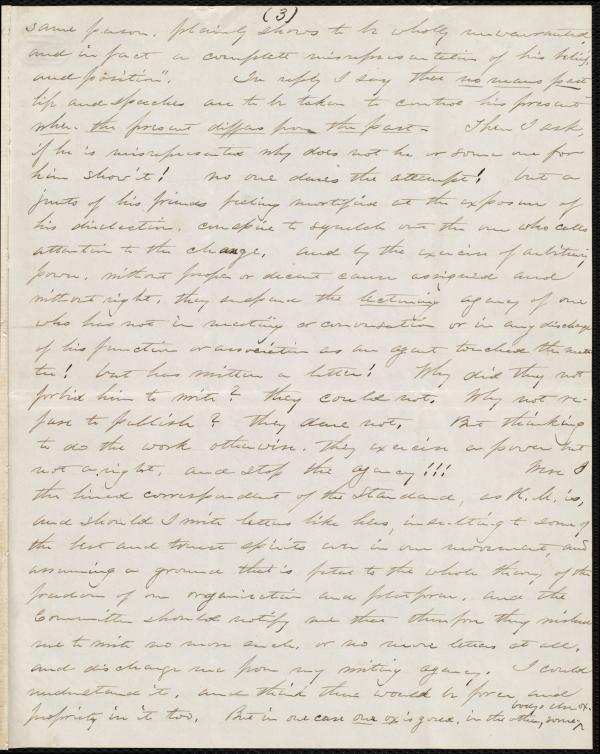 (3)
same person, plainly shows to be wholly unwarranted,
and in fact a complete misrepresentation of his belief
and position". In reply I say that no mans past
life and speeches are to be taken to control his present
when the present differs from the past. Then I ask,
if he is misrepresented why does not he or some one for
him show it! no one dares the attempt! but a
junto of his friends feeling mortified at the exposure of
his disclection, conspire to squelch out the one who calls
attention to the change, and by the exercise of arbitrary
power, without proper or decent cause assigned and
without right, they suspend the lecturing agency of one
who has not in meeting or conversation or in any discharge
of his function or association as an agent touched the mat-
ter! but has written a letter! Why did they not
forbid him to write? they could not. Why not re-
fuse to publish? they dare not. But thinking
to do the work otherwise, they exercise a power but
not a right, and stop the agency!!! Were I
the hired correspondent of the Standard, as R. M. is,
and should I write letters like his, insulting to some of
the best and truest spirits ever in our movement, and
assuming a ground that is fatal to the whole theory of the
freedom of our organization and platform, and the
Committee should notify me that therefore they wished
me to write no more such, or no more letters at all,
and discharge me from my writing agency. I could
understand it, and think there would be force and
propriety in it too. But in one case one ox is gored, in the other, some-
bodys else ox.